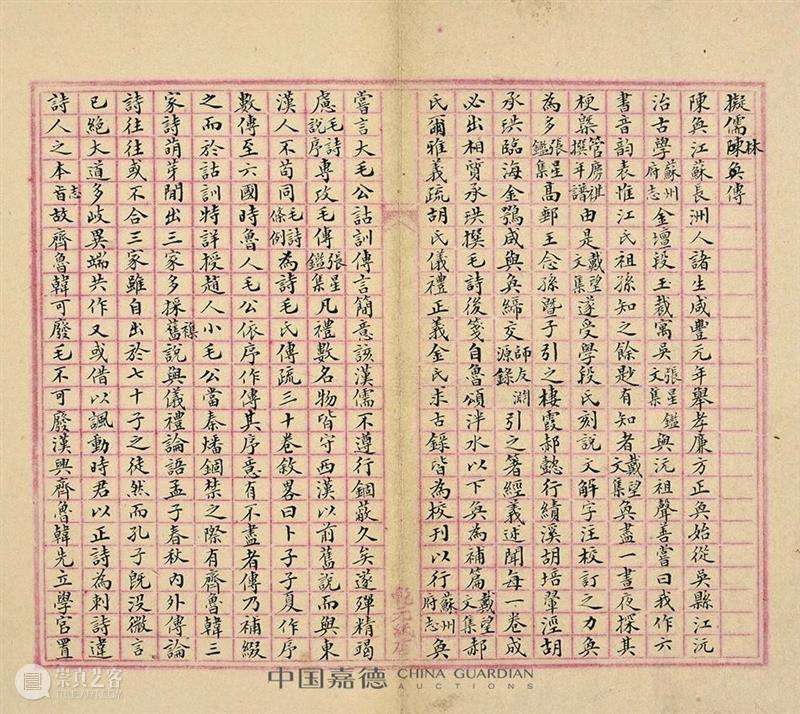 擬儒林陳奐傳
陳奐江蘇長洲人諸生咸豐元年舉孝廉方正奐始從吳縣江沅
治古學蘇州府志金壇段玉裁寓吳張星鑑文集與沅祖聲善嘗曰我作六
書音韵表惟江氏祖孫知之餘尟有知者戴望文集奐盡一晝夜探其
梗槩管慶祺撰年譜由是戴望文集遂受學段氏刻說文解字注校訂之力奐
為多張星鑑集高郵王念孫暨子引之棲霞郝懿行績溪胡培翬涇胡
承珙臨海金鶚咸與奐締交師友淵源錄引之箸經義述聞每一卷成
必出相質承珙撰毛詩後箋自魯頌泮水以下奐為補篇戴望文集郝
氏爾雅義疏胡氏儀禮正義金氏求古錄皆為校刊以行蘇州府志奐
嘗言大毛公詁訓傳言簡意該漢儒不遵行錮蔽久矣遂殫精竭
慮毛詩說序專攻毛傳張星鑑集凡禮數名物皆守西漢以前舊說而與東
漢人不苟同毛詩條例為詩毛氏傳疏三十卷敘畧曰卜子子夏作序
數傳至六國時魯人毛公依序作傳其序意有不盡者傳乃補綴
之而於詁訓特詳授趙人小毛公當秦燔錮禁之際有齊魯韓三
家詩萌芽間出三家多採舊說與儀禮論語孟子春秋內外傳論
詩往往或不合三家雖自出於七十子之徒然而孔子既沒微言
已絕大道多歧異端共作又或借以諷動時君以正詩為刺詩違
詩人之本志故齊魯韓可廢毛不可廢漢興齊魯韓先立學官置
中国嘉德 CHINA GUARDIAN
AUCTIONS
崇真艺客